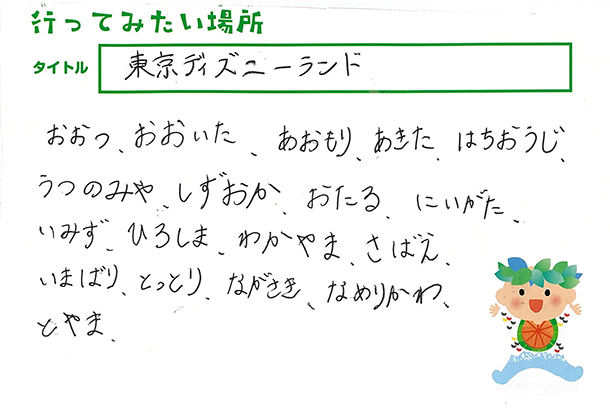 行ってみたい場所
タイトル 東京ディズニーランド
おおつ、おおいた、あおもり、あきた、はちおうじ、
うつのみや、しずおか、おたる、にいがた、
いみず、ひろしま、わかやま、さばえ、
いまばり、とっとり、ながさき、なめりかわ、
とやま、